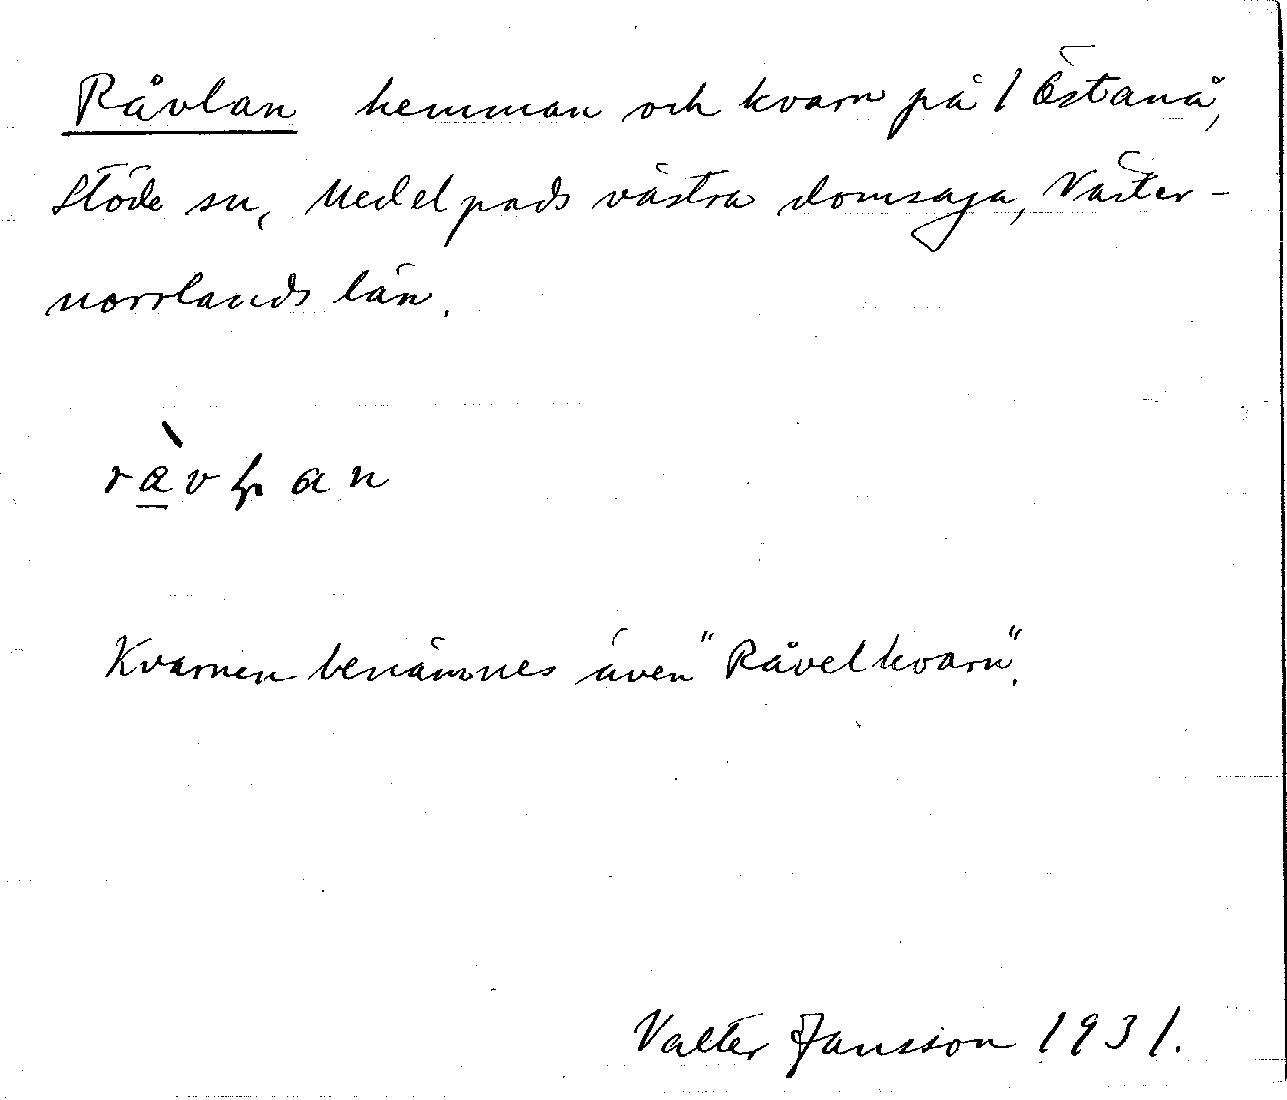 Råvlan hemman och kvarn på 1 Östanå,
Stöde sn, Medelpads västra domsaga, Väster-
norrlands län.
Kvarnen benämnes även "Råvelkvarn".
Valter Jansson 1931.